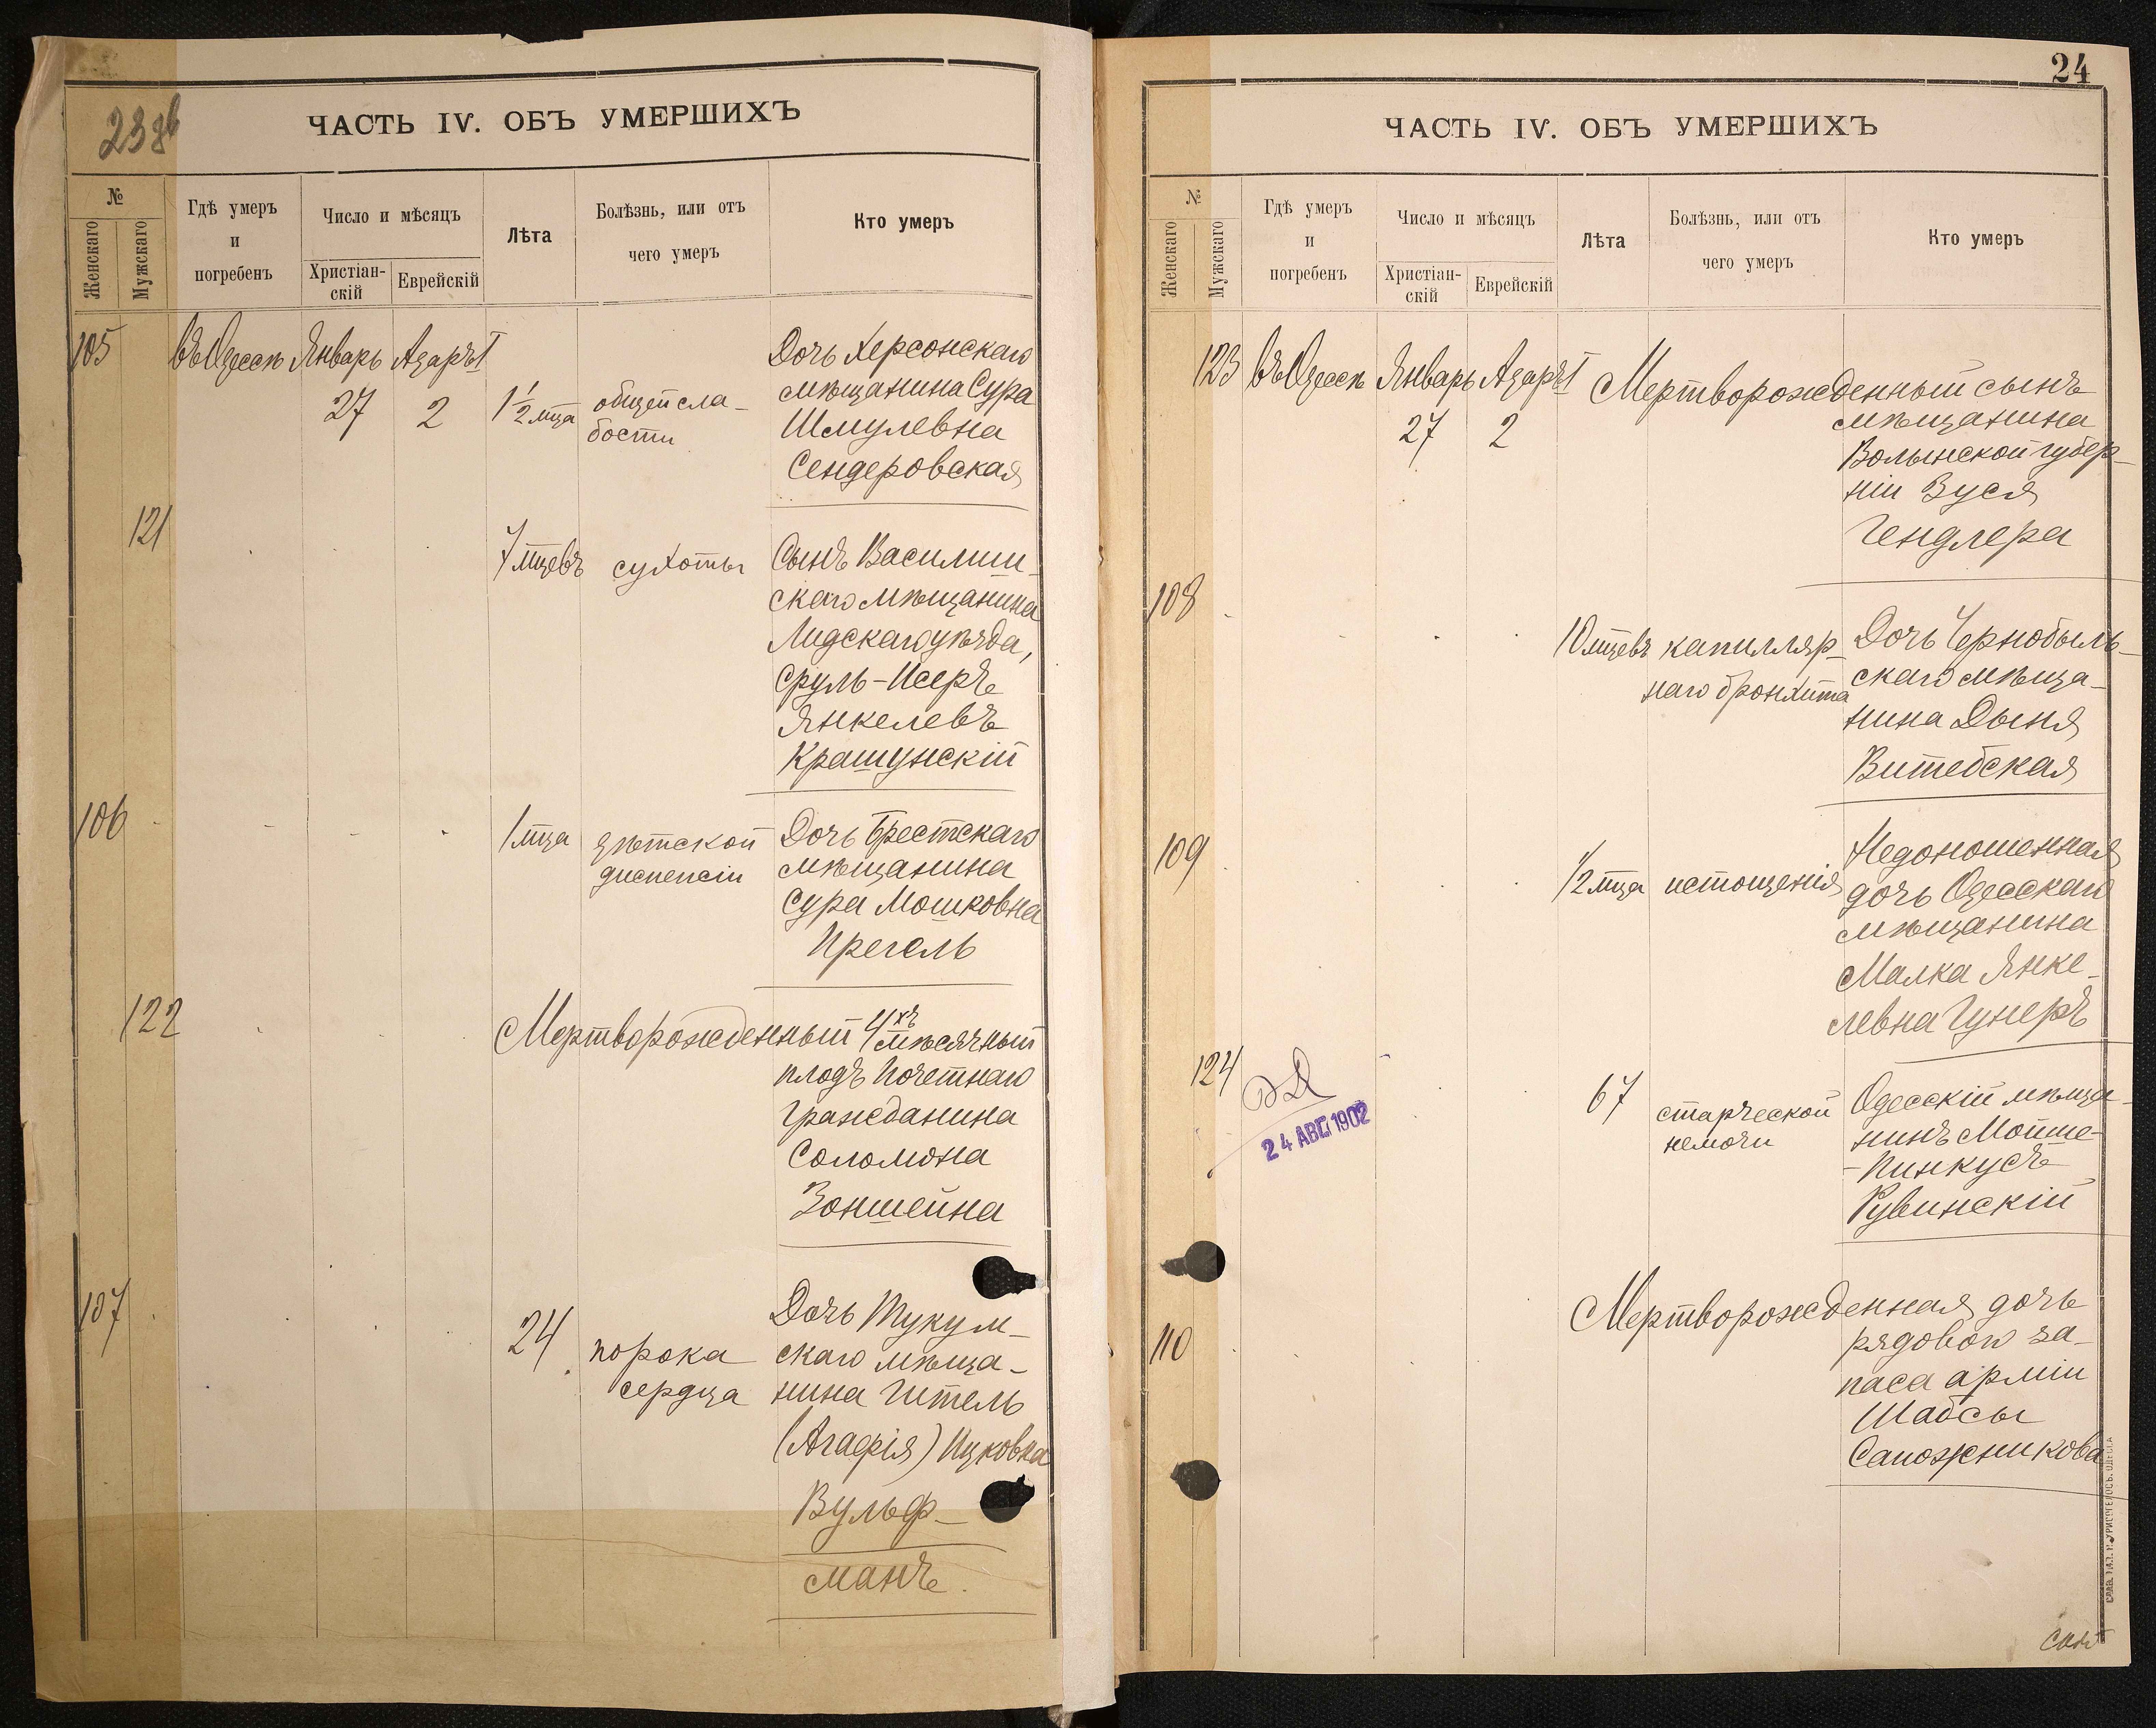 23 об
ЧАСТЬ IV. ОБЪ УМЕРШИХЪ
№
Женскаго
Мужскаго
Гдѣ умеръ
и
погребенъ
Число и мѣсяцъ
Христіан-
скій
Еврейскій
Лѣта
Болѣзнь, или отъ
чего умеръ
Кто умеръ
105
въ Одессѣ
Январь
27
Адаръ I
2
1½ мца
общей сла-
бости
Дочь Херсонскаго
мѣщанина Сура
Шмулевна
Сендеровская
121
7 мцевъ
сухоты
Сынъ Василиш-
скаго мѣщанина
Лидскаго уѣзда,
Сруль-Исеръ
Янкелевъ
Крашунскій
106
1 мца
дѣтской
диспепсіи
Дочь Брестскаго
мѣщанина
Сура Мошковна
Прегель
122
Мертворожденный 4хъ
мѣсячный
плодъ Почетнаго
Гражданина
Соломона
Зоншейна
107
24
порока
сердца
Дочь Тукум-
скаго мѣща-
нина Гитель
(Агафія) Ицковна
Вульф-
манъ.
24
ЧАСТЬ IV. ОБЪ УМЕРШИХЪ
№
Женскаго
Мужскаго
Гдѣ умеръ
и
погребенъ
Число и мѣсяцъ
Христіан-
скій
Еврейскій
Лѣта
Болѣзнь, или отъ
чего умеръ
Кто умеръ
123
въ Одессѣ
Январь
27
Адаръ I
2
Мертворожденный сынъ
мѣщанина
Волынской губер-
ніи Зуся
Гендлера
108
10 мцевъ
капилляр-
наго бронхита
Дочь Чернобыль-
скаго мѣща-
нина Дыня
Витебская
109
½ мца
истощенія
Недоношенная
дочь Одесскаго
мѣщанина
Малка Янке-
левна Гунеръ
124
24 АВГ. 1902
67
старческой
немочи
Одесскій мѣща-
нинъ Мойше-
-Пинкусъ
Рувинскій
110
Мертворожденная дочь
рядового за-
паса арміи
Шабсы
Сапожникова